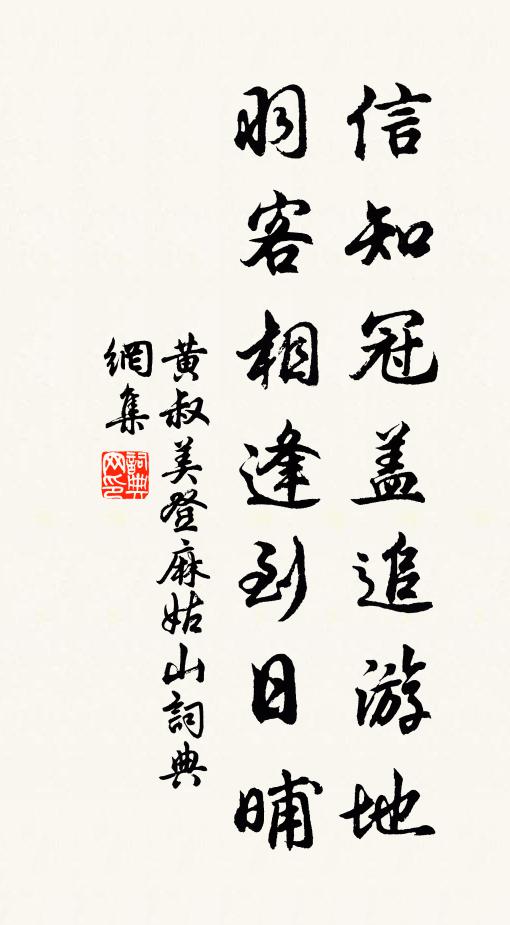 信知冠盖追游地
羽客相逢到日晡
黄叔美登麻姑山詞典
網集
詞典網印